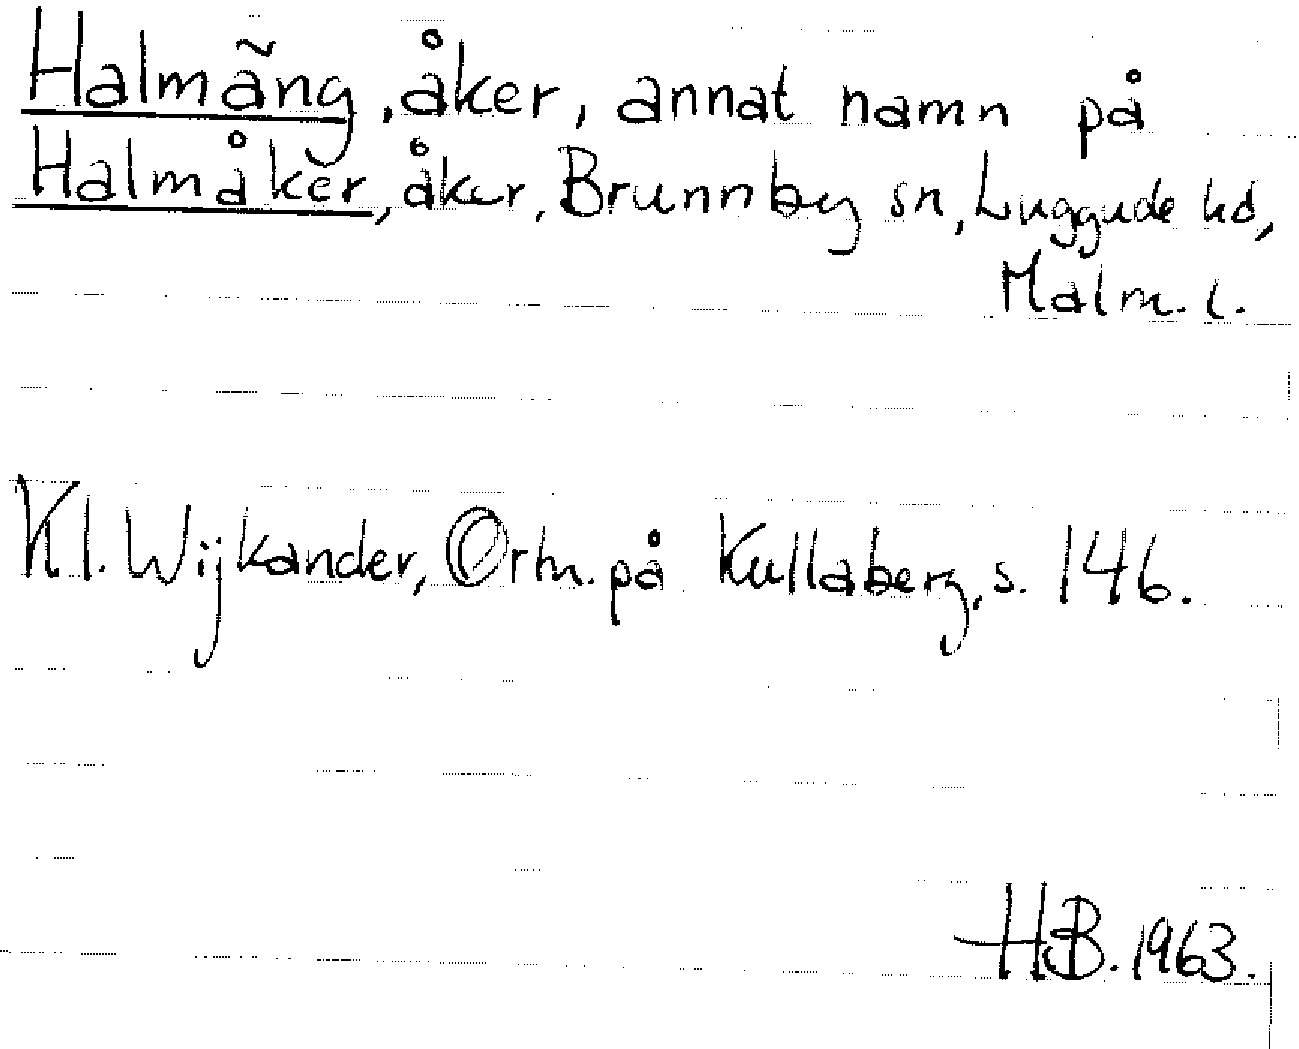 Halmãng, åker, annat namn på
Halmåker, åker, Brunnby sn, Luggude hd,
Malm. l.
Kl. Wijkander, Ortn. på Kullaberg, s. 146.
HB. 1963.